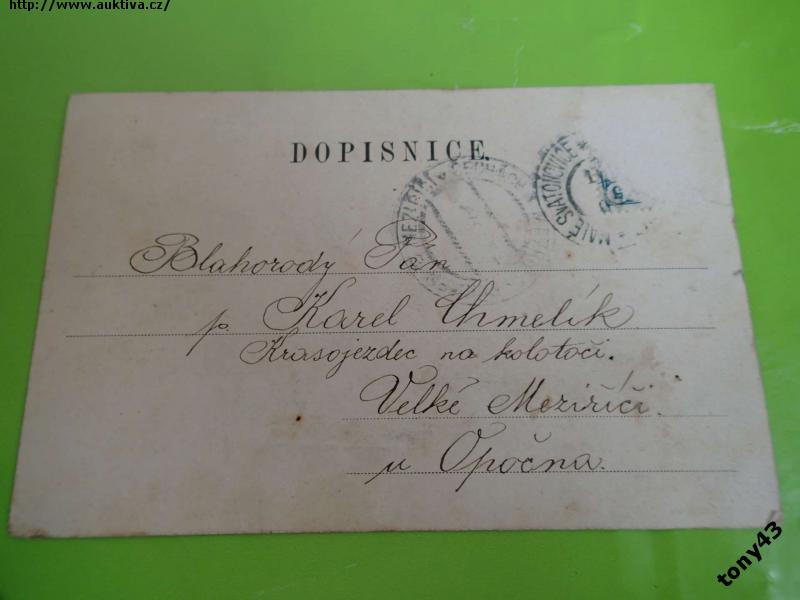 http://www.auktiva.cz/
DOPISNICE.
MALÉ SVATOŇOVICE
Blahorodý Pán
p. Karel Chmelík
Krasojezdec na kolotoči.
Velké Meziříčí.
u Opočna.
tony43